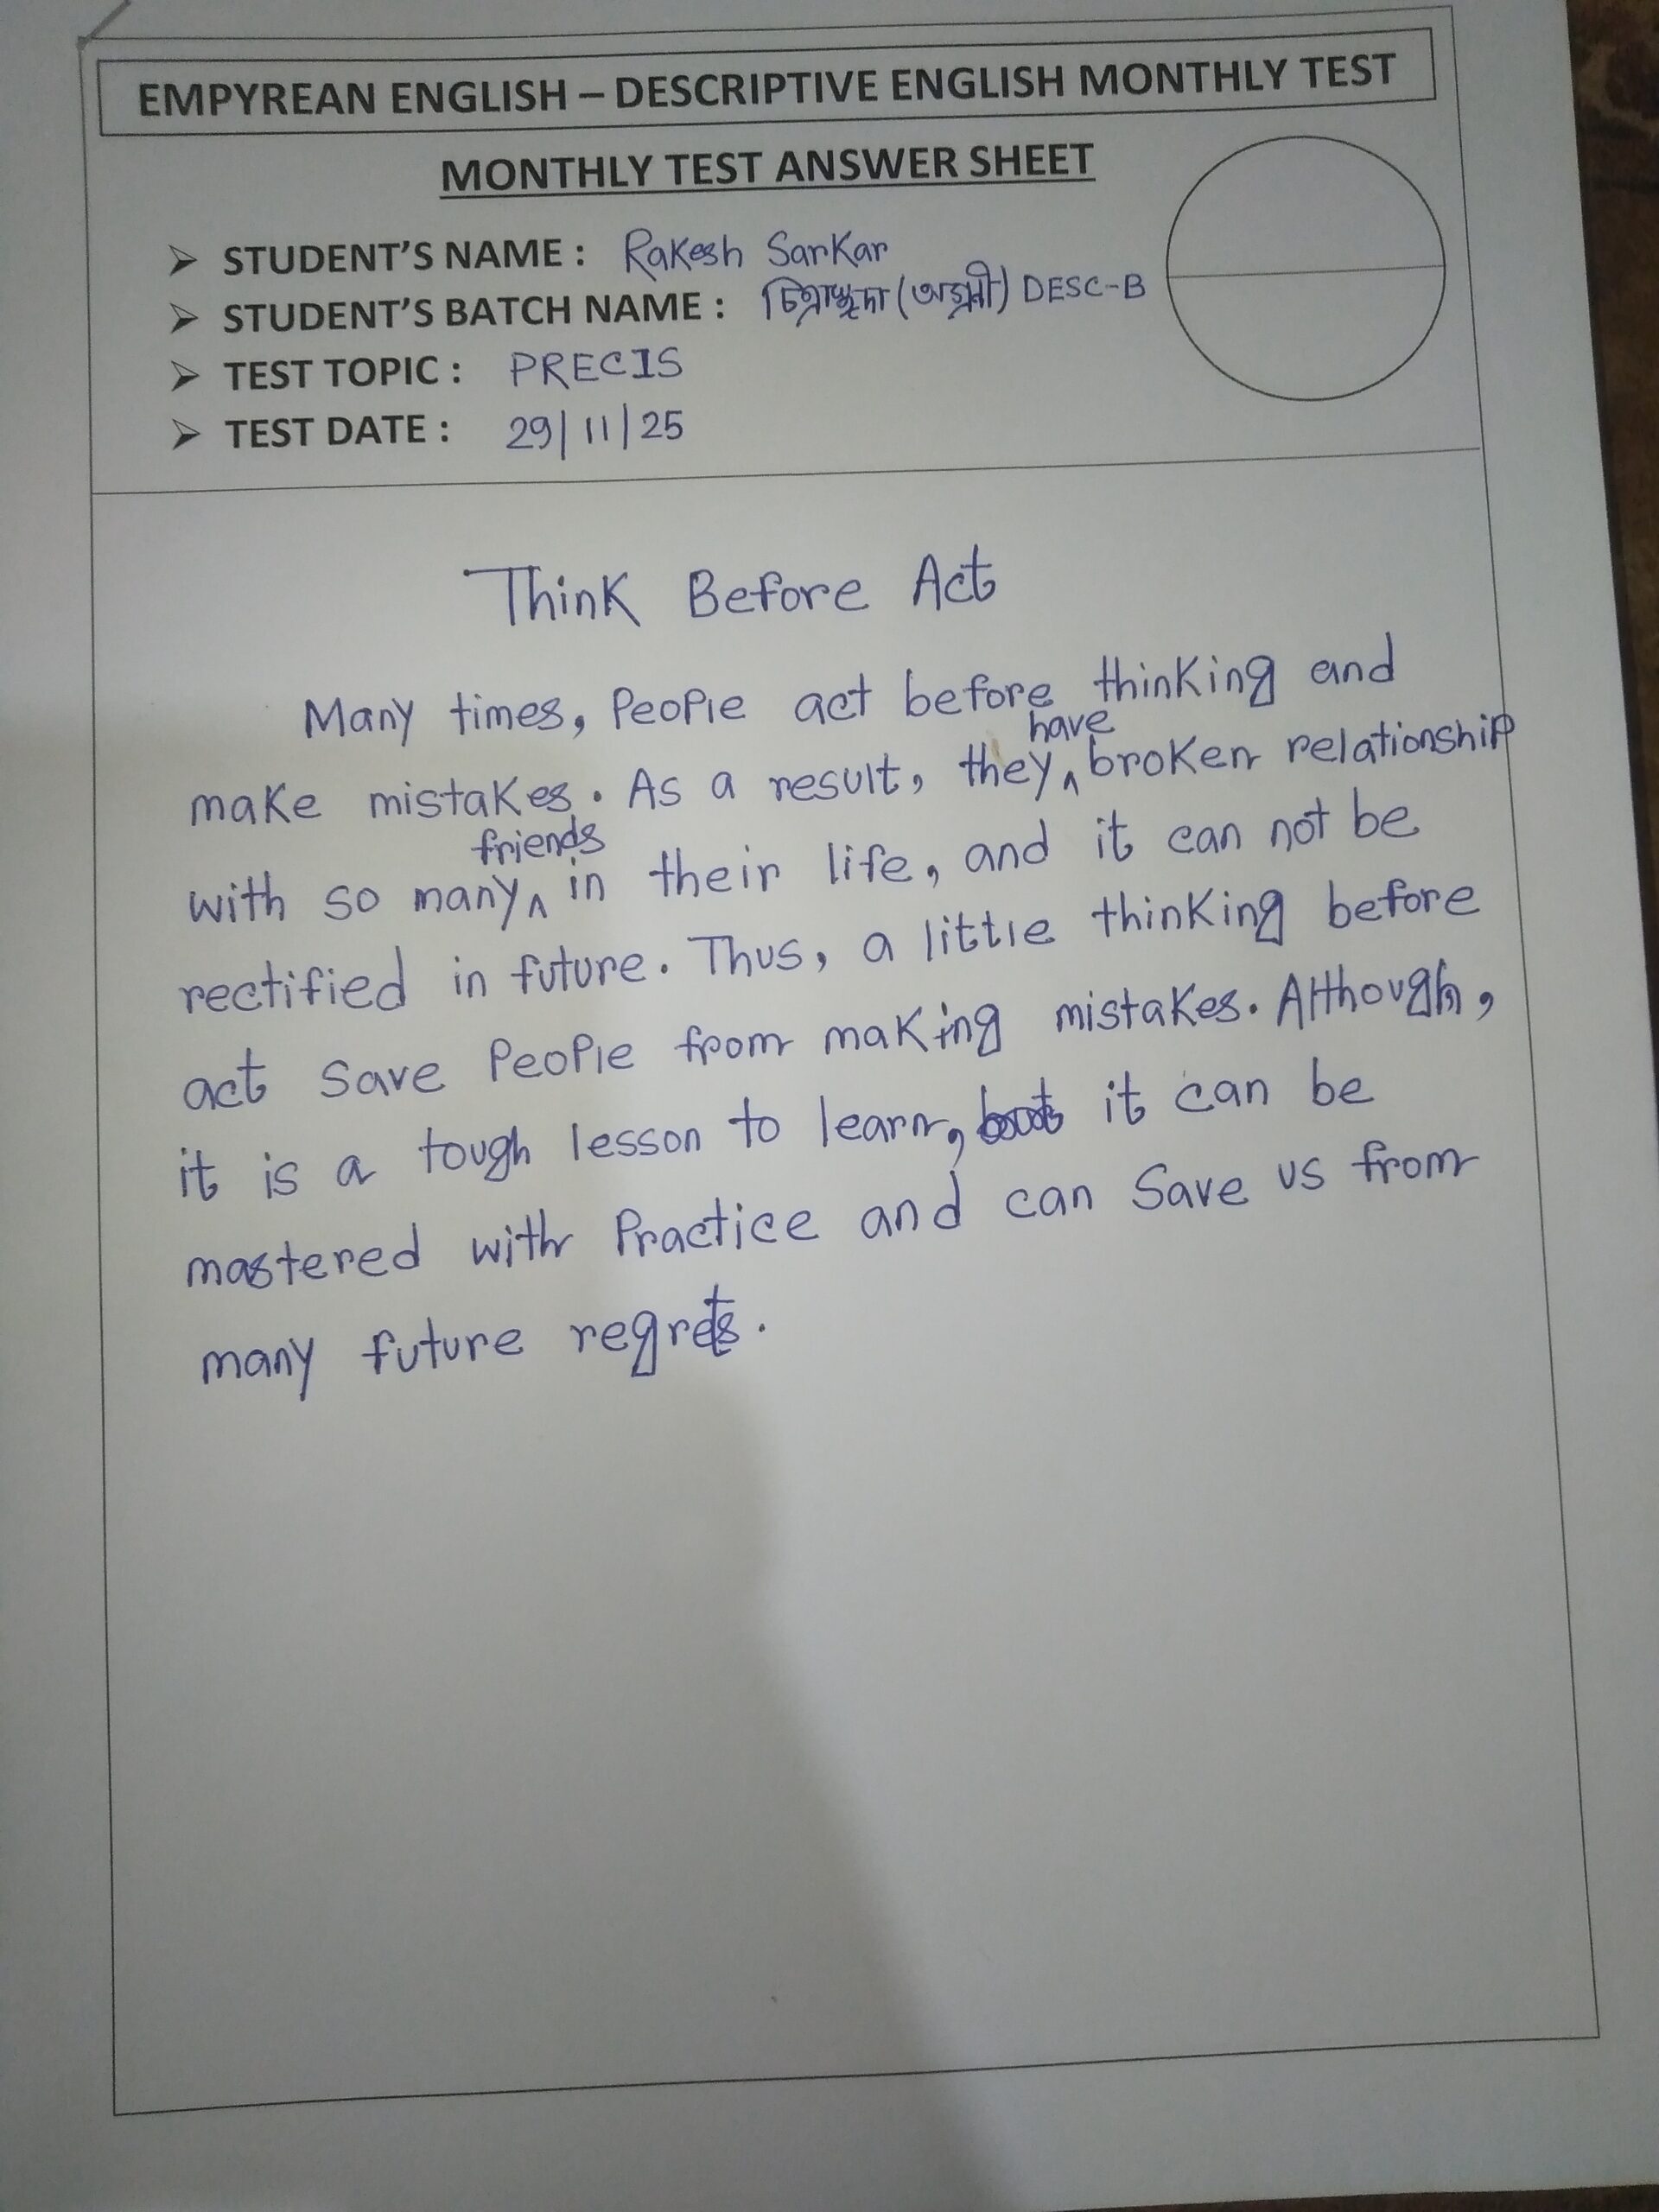 EMPYREAN ENGLISH – DESCRIPTIVE ENGLISH MONTHLY TEST
MONTHLY TEST ANSWER SHEET
➢ STUDENT'S NAME : Rakesh Sarkar
➢ STUDENT'S BATCH NAME : DESC-B
➢ TEST TOPIC : PRECIS
➢ TEST DATE : 29/11/25
Think Before Act
Many times, People act before thinking and
make mistakes. As a result, they have broken relationship
with so many friends in their life, and it can not be
rectified in future. Thus, a little thinking before
act save People from making mistakes. Although,
it is a tough lesson to learn, it can be
mastered with Practice and can save us from
many future regrets.